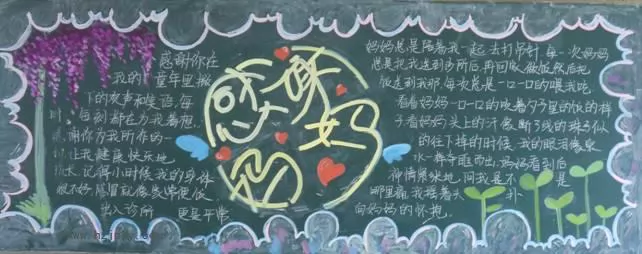 感谢你在
我的童年里撒
下的欢声和笑语,每
时每刻都在为我着想,
谢你为我所作的一
切,让我健康快乐地
成长,记得小时候我的身体
很不好,感冒就像家常便饭
出入诊所 更是平常
感谢妈妈
妈妈总是陪着我一起去打吊针,每一次妈妈
总是把我送到诊所后,再回家做饭然后把
饭送到我那,每次总是一口一口的喂我吃,
看着妈妈一口一口的吹着勺子里的饭的样
子看妈妈头上的汗像断了线的珠子似
的往下掉的时候,我的眼泪像泉
水一样夺眶而出,妈妈看到后
神情紧张地,问我是不 是
哪里痛,我摇着头 扑
向妈妈的怀抱。